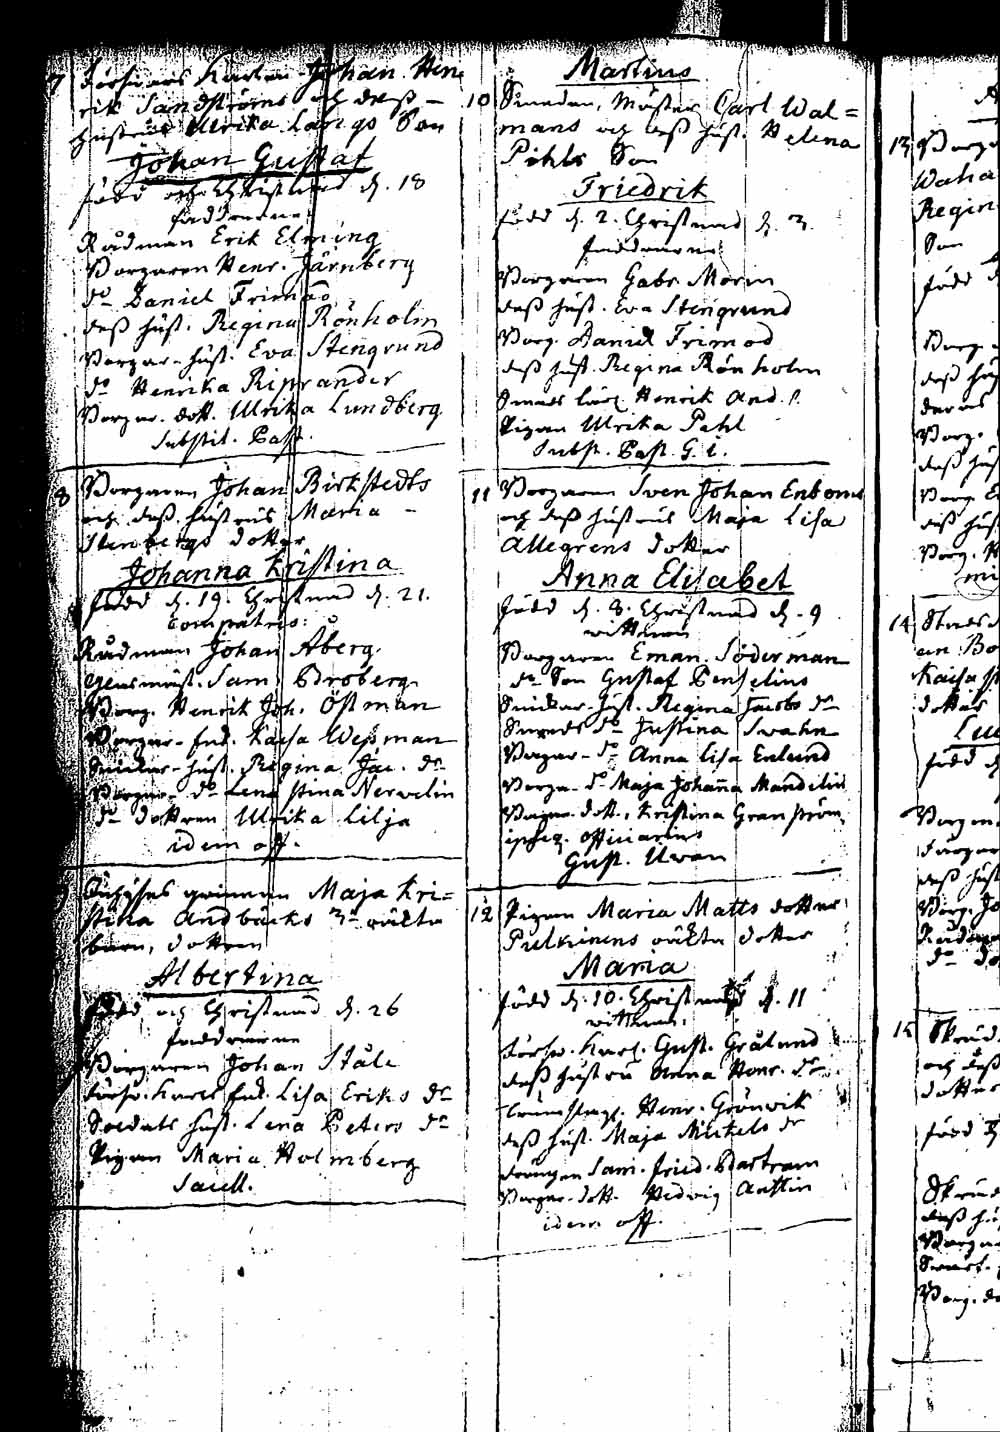 7 Försvars Karlen Johan Hen
rik Sandströms och dess
hustrus Ulrika Längs Son
Johan Gustaf
född och Christnad d. 18
fadderne
Rådman Erik Elming
Borgaren Henr. Järnberg
do Daniel Frimod
dess hust. Regina Rönholm
Borgar-hust. Eva Stengrund
do Henrika Riprander
Borgar. dott. Ulrika Lundberg
Substit. Past.
8 Borgaren Johan Birkstedts
och dess hustrus Maria
Stenbergs dotter
Johanna Kristina
född d. 19. Christnad d. 21.
Compatres:
Rådman Johan Åberg
Sam. Broberg
Borg. Henrik Joh. Östman
Borgar-enk. Kaisa Wessman
Snickar-hust. Regina Jac. dr
Borgar- do Lena Stina Nerwelin
do dottren Ulrika Lilja
idem off.
9 Inhyses qvinnan Maja Kri=
stina Andbäcks 3dje oäkta
barn, dottren
Albertina
född och Christnad d. 26
fadderne
Borgaren Johan Ståle
Försv. Karls enk. Lisa Eriks dr
Soldats hust. Lena Peters dr
Pigan Maria Holmberg
Saell.
Martius
10 Smeden, Mäster Carl Wal=
mans och dess hust. Helena
Pihls Son
Friedrik
född d. 2. Christnad d. 3.
fadderne
Borgaren Gabr. Morin
dess hust. Eva Stengrund
Borg. Daniel Frimod
dess hust. Regina Rönholm
Smeds lärl. Henrik And. s.
Pigan Ulrika Pahl
Subst. Past. G. i.
11 Borgaren Sven Johan Enboms
och dess hustrus Maja Lisa
Allegrens dotter
Anna Elisabet
född d. 8. Christnad d. 9
wittnen
Borgaren Eman. Söderman
do Son Gustaf Penselius
Snickar-hust. Regina Jacobs dr
Smeds do Justina Swahn
Borgar- do Anna Lisa Enlund
Borgar- do Maja Johanna Mandelin
Borgar dott. Kristina Granström
officiarius
Gust. Uran
12 Pigan Maria Matts dotter
Pulkinens oäkta dotter
Maria
född d. 10. Christnad d. 11
wittnen:
Försv. Karl. Gust. Grålund
dess hustru Anna Henr. dr
Henr. Grönvik
dess hust. Maja Mickels dr
Drängen Sam. Fried. Bartram
Borgar-dott. Hedvig Anttlin
idem off.
13 Borga
Waha
Regin
Son
född d
Borg.
dess hu
Borg.
dess hus
Borg. E
dess hust
Borg. H
14
Kaisa
dotter
Lu
född d
Borgen
dess hust
Borg. Jo
do do
15
och dess
dotter
född d
dess hu
Borgar
Borg. do